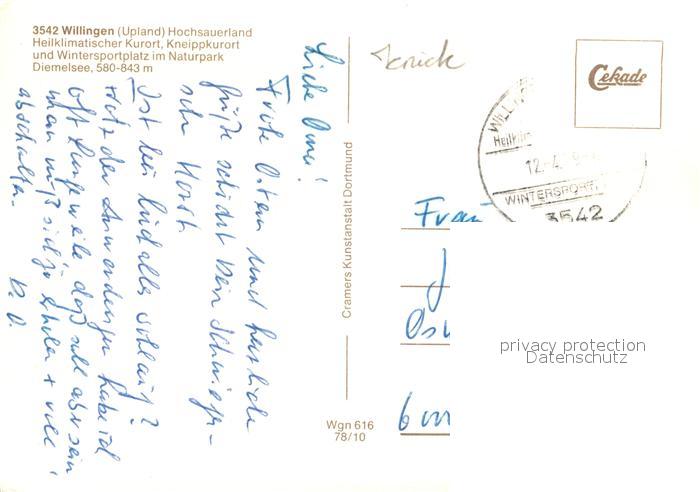 3542 Willingen (Upland) Hochsauerland
Heilklimatischer Kurort, Kneippkurort
und Wintersportplatz im Naturpark
Diemelsee, 580-843 m
Liebe Oma!
Frohe Ostern und herzliche
Grüße schickt Dein Schwieger-
sohn Horst
Ist bei Euch alles wohlauf?
Trotz der Anwendungen habe ich
oft Langeweile, das soll aber sein
man muß sich erholen + voll
abschalten.
D. O.
Cramers Kunstanstalt Dortmund
Wgn 616
78/10
Knick
Cekade
Heilklim
12.-4.
WINTERSPORT
3542
Frau
privacy protection
Datenschutz